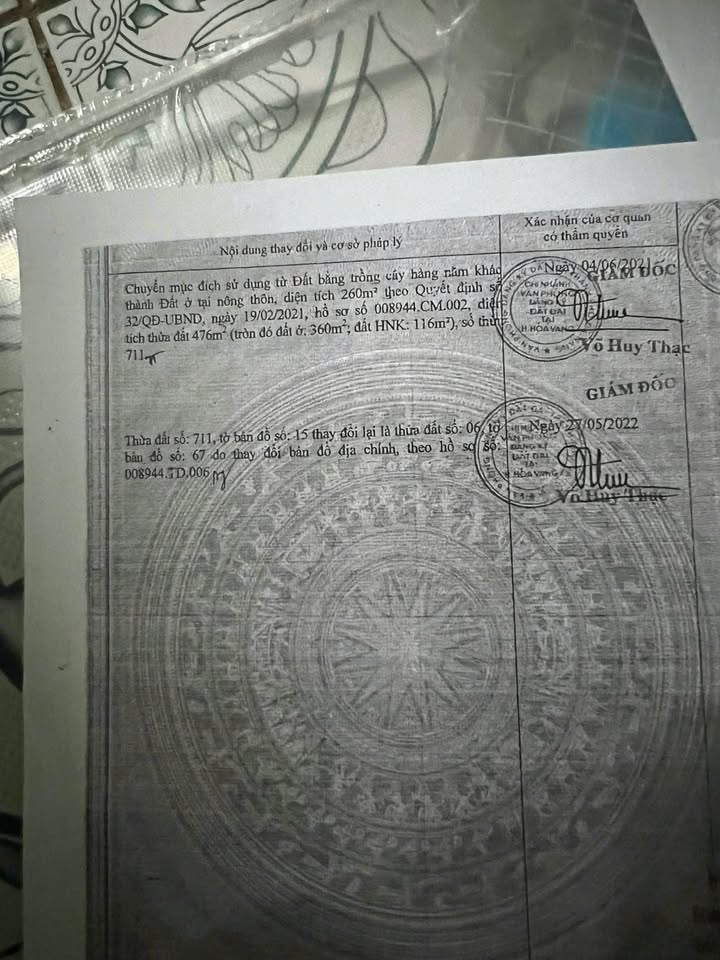 Nội dung thay đổi và cơ sở pháp lý
Xác nhận của cơ quan
có thẩm quyền
Chuyển mục đích sử dụng từ Đất bằng trồng cây hàng năm khác
thành Đất ở tại nông thôn, diện tích 260m² theo Quyết định số
32/QĐ-UBND, ngày 19/02/2021, hồ sơ số 008944.CM.002, diện
tích thửa đất 476m² (tròn đó đất ở: 360m²; đất HNK: 116m²), số thửa
711
Ngày 04/06/2021
GIÁM ĐỐC
CHI NHÁNH
VĂN PHÒNG
ĐĂNG KÝ
ĐẤT ĐAI
TẠI
H.HÒA VANG
Võ Huy Thạc
GIÁM ĐỐC
Thửa đất số: 711, tờ bản đồ số: 15 thay đổi lại là thửa đất số: 06, tờ
bản đồ số: 67 do thay đổi bản đồ địa chính, theo hồ sơ số:
008944.TD.006
Ngày 27/05/2022
VĂN PHÒNG
ĐĂNG KÝ
ĐẤT ĐAI
TẠI
HÒA VANG
Võ Huy Thạc